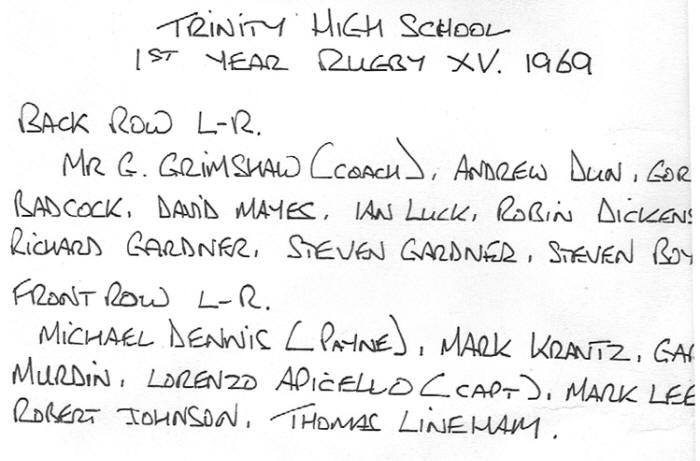 TRINITY HIGH SCHOOL
1ST YEAR RUGBY XV. 1969
BACK ROW L-R.
MR G. GRIMSHAW (COACH), ANDREW DUN, GOR
BADCOCK, DAVID MAYES, IAN LUCK, ROBIN DICKENS
RICHARD GARDNER, STEVEN GARDNER, STEVEN BOY
FRONT ROW L-R.
MICHAEL DENNIS (PAYNE), MARK KRANTZ, GAR
MURDIN, LORENZO APICELLO (CAPT), MARK LEE
ROBERT JOHNSON, THOMAS LINEHAM.